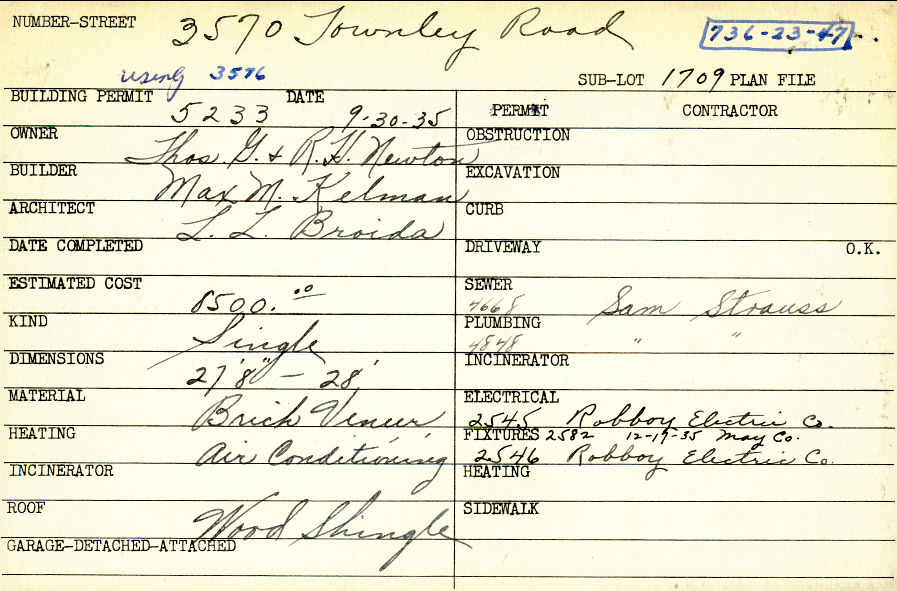 NUMBER-STREET 3570 Townley Road 736-23-47
using 3576
SUB-LOT 1709 PLAN FILE
BUILDING PERMIT 5233 DATE 9-30-35
PERMIT CONTRACTOR
OWNER Thos. G. & R. H. Newton
OBSTRUCTION
BUILDER Max M. Kelman
EXCAVATION
ARCHITECT L. L. Broida
CURB
DATE COMPLETED
DRIVEWAY O.K.
ESTIMATED COST 8500.00
SEWER 4668 Sam Strauss
KIND Single
PLUMBING 4848 " "
DIMENSIONS 27'8" - 28'
INCINERATOR
MATERIAL Brick Veneer
ELECTRICAL 2545 Robboy Electric Co.
HEATING Air Conditioning
FIXTURES 2582 12-19-35 May Co.
2546 Robboy Electric Co.
INCINERATOR
HEATING
ROOF Wood Shingle
SIDEWALK
GARAGE-DETACHED-ATTACHED